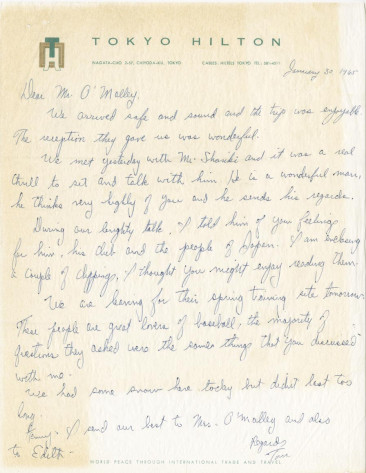 TOKYO HILTON
NAGATA-CHO, 2-CHOME, CHIYODA-KU, TOKYO CABLES: HILTELS TOKYO TEL: 581-4511
January 31, 1965
Dear Mr. O'Malley
We arrived safe and sound and the trip was enjoyable.
The reception they gave us was wonderful.
We met yesterday with Mr. Shoriki and it was a real
thrill to sit and talk with him. He is a wonderful man,
he thinks very highly of you and he sends his regards.
During our lengthy talk, I told him of your feelings
for him, his club and the people of Japan. I am enclosing
a couple of clippings, I thought you might enjoy reading them.
We are leaving for their spring training site tomorrow.
These people are great lovers of baseball, the majority of
questions they asked were the same things that you discussed
with me.
We had some snow here today but didn't last too
long.
I send our best to Mrs. O'Malley and also
to Edith.
Regards
WORLD PEACE THROUGH INTERNATIONAL TRADE AND TRAVEL